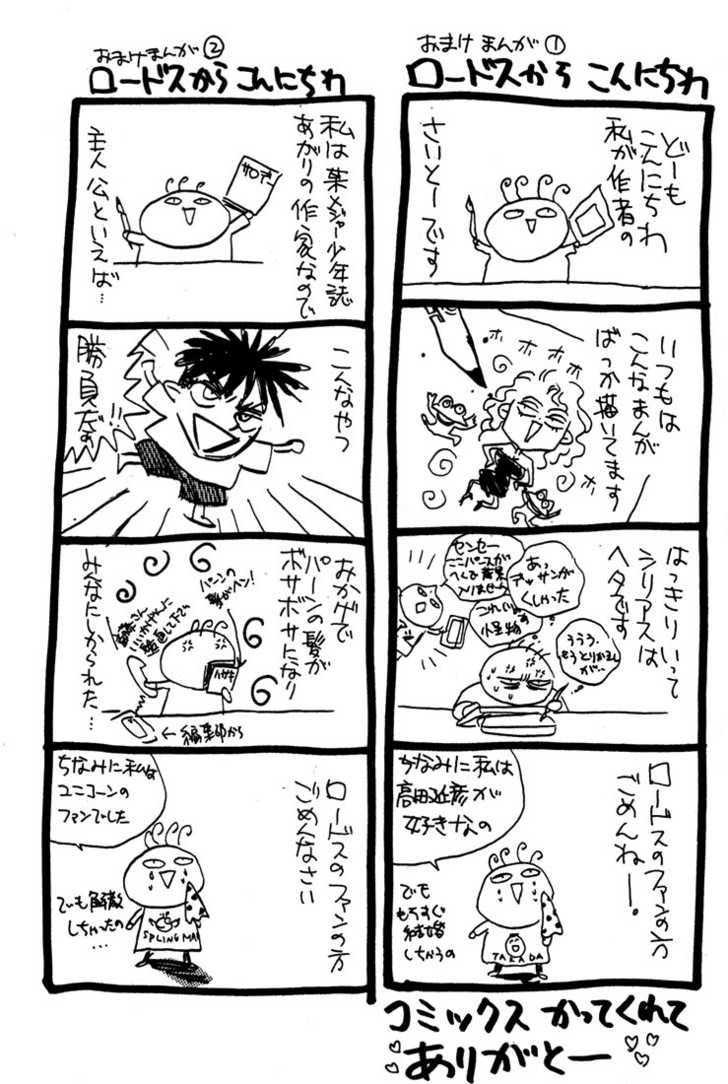 おまけまんが①
ロードスから こんにちわ
どーも
こんにちわ
私が作者の
さいとーです
いつもは
こんなまんが
ばっか描いてます
ホホホホ
はっきりいって
シリアスは
ヘタです
センセー
ここパースが
へんで背景
入りません
あっ
デッサンが
くるった
これじゃ
怪物
ううう.
もうとりかえし
が…
ロードスのファンの方
ごめんねー。
ちなみに私は
高田延彦が
好きなの
でも
もうすぐ
結婚
しちゃうの
TAKADA
おまけまんが②
ロードスから こんにちわ
私は某メジャー少年誌
あがりの作家なので
主人公といえば…
こんなやつ
勝負だぁ!!
おかげで
パーンの髪が
ボサボサになり
みんなにしかられた…
パーンの
髪がヘン!
←編集部から
ロードスのファンの方
ごめんなさい
ちなみに私は
ユニコーンの
ファンでした
でも解散
しちゃったの
…
SPLING MA
コミックス かってくれて
ありがとー